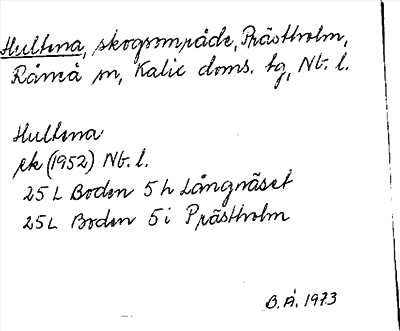 Hultena, skogsområde, Prästholm,
Råneå sn, Kalix doms. tg, Nb. l.
Hultena
ek (1952) Nb. l.
25 L Boden 5 h Långnäset
25 L Boden 5 i Prästholm
B. Å. 1973